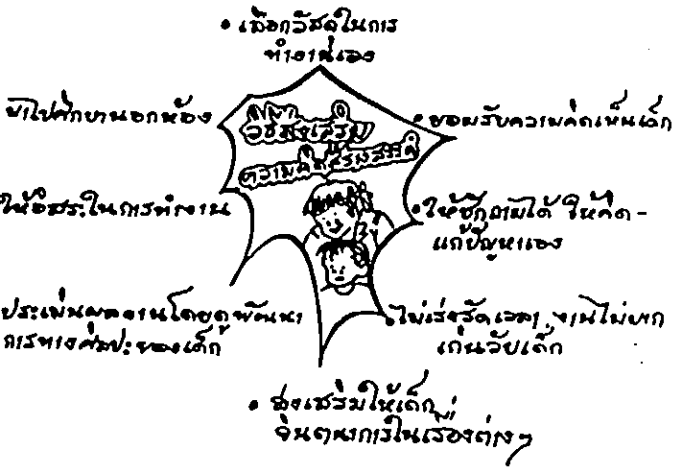 • เลือกวัสดุในการ
ทำงานเอง
วิธีส่งเสริม
ความคิดสร้างสรรค์
พาไปศึกษานอกห้อง
• ยอมรับความคิดเห็นเด็ก
ให้อิสระในการทำงาน
• ให้ซักถามได้ ให้คิด-
แก้ปัญหาเอง
ประเมินผลงานโดยดูพัฒนา
การทางศิลปะของเด็ก
• ไม่เร่งรัดเวลา, งานไม่ยาก
เกินวัยเด็ก
• ส่งเสริมให้เด็ก
จินตนาการในเรื่องต่างๆ